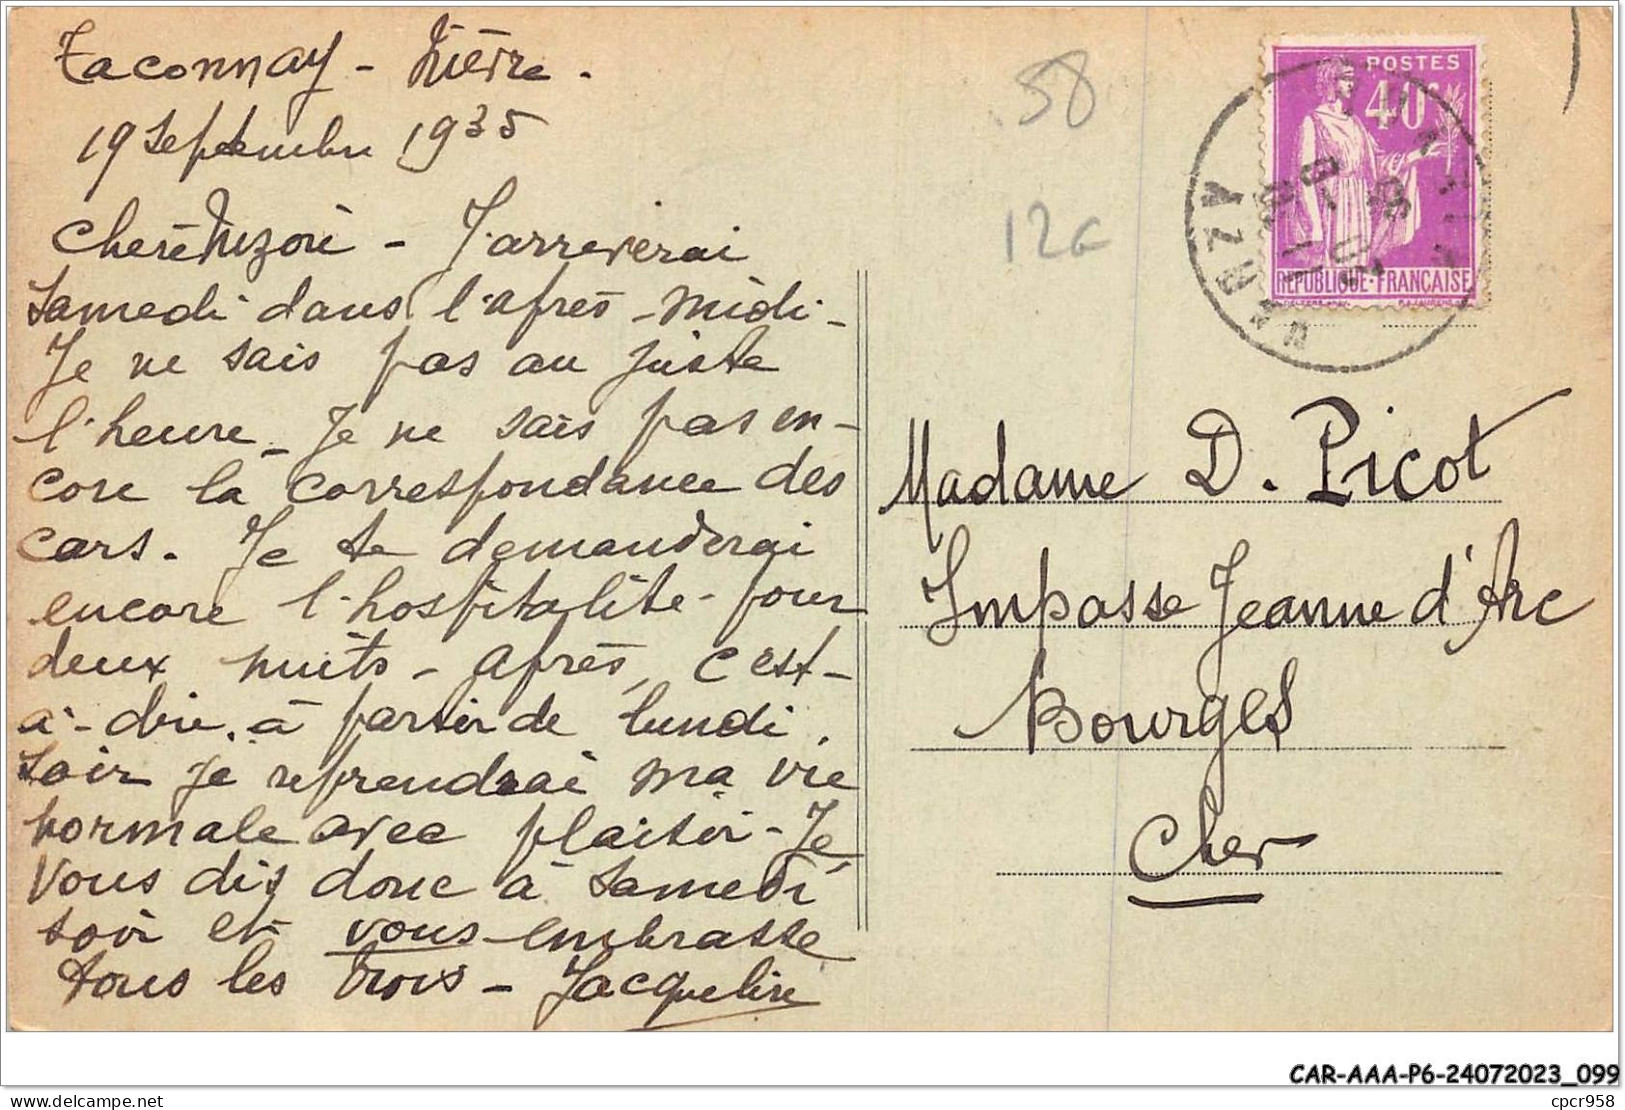 Taconnay - Nièvre.
19 Septembre 1935
Chère - J'arriverai
Samedi dans l'après-midi -
Je ne sais pas au juste
l'heure - Je ne sais pas en-
core la correspondance des
cars. Je te demanderai
encore l'hospitalité - pour
deux nuits - après, c'est-
à-dire, à partir de lundi
soir je reprendrai ma vie
normale avec plaisir - Je
vous dis donc à Samedi
soir et vous embrasse
tous les trois - Jacqueline
58
12G
POSTES
40c
REPUBLIQUE·FRANÇAISE
Madame D. Picot
Impasse Jeanne d'Arc
Bourges
Cher
CAR-AAA-P6-24072023_099
cpcr958